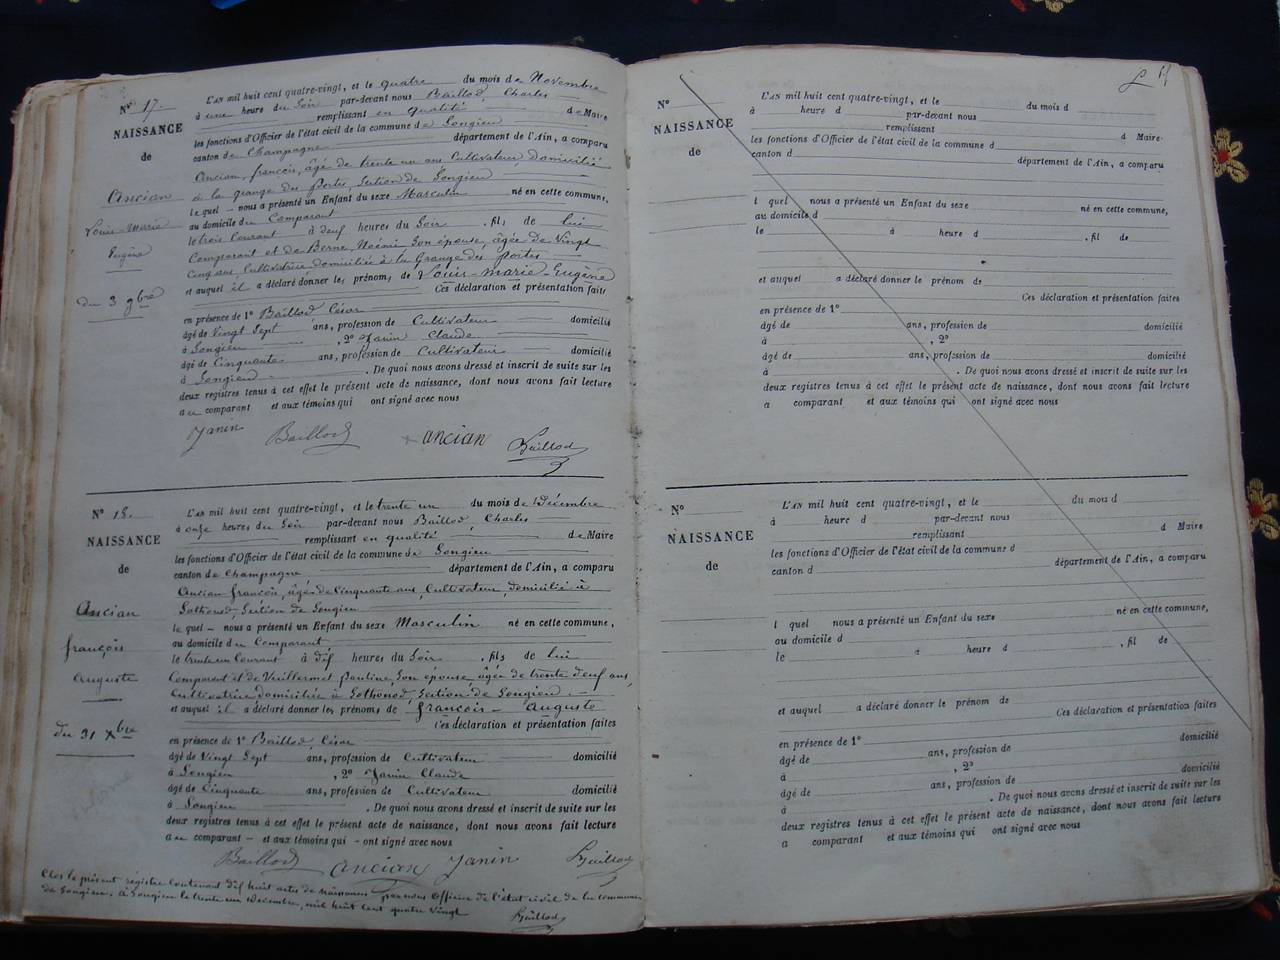 N° 17
NAISSANCE
de
Ancian
Louis-Marie
Eugène
du 3 9bre
L'AN mil huit cent quatre-vingt, et le quatre du mois de Novembre
à une heure du Soir par-devant nous Baillod, Charles
remplissant en qualité de Maire
les fonctions d'Officier de l'état civil de la commune de Songieu
canton de Champagne département de l'Ain, a comparu
Ancian, françois, âgé de trente un ans Cultivateur, domicilié
à la grange des portes, Section de Songieu
le quel nous a présenté un Enfant du sexe Masculin né en cette commune,
au domicile du Comparant
le trois Courant à deux heures du Soir, fils de lui
Comparant et de Berne, Noémi Son épouse, âgée de Vingt
Cinq ans, Cultivatrice, domiciliée à la Grange des portes
et auquel il a déclaré donner les prénoms de Louis-marie-Eugène
Ces déclaration et présentation faites
en présence de 1° Baillod César
âgé de Vingt Sept ans, profession de Cultivateur domicilié
à Songieu, 2° Janin Claude
âgé de Cinquante ans, profession de Cultivateur domicilié
à Songieu. De quoi nous avons dressé et inscrit de suite sur les
deux registres tenus à cet effet le présent acte de naissance, dont nous avons fait lecture
au comparant et aux témoins qui ont signé avec nous
Janin Baillod ancian Baillod
N° 18.
NAISSANCE
de
Ancian
françois
Auguste
du 31 Xbre
L'AN mil huit cent quatre-vingt, et le trente un du mois de Décembre
à onze heures du Soir par-devant nous Baillod, Charles
remplissant en qualité de Maire
les fonctions d'Officier de l'état civil de la commune de Songieu
canton de Champagne département de l'Ain, a comparu
Ancian françois, âgé de Cinquante ans, Cultivateur, domicilié à
Sothonod, Section de Songieu
le quel nous a présenté un Enfant du sexe Masculin né en cette commune,
au domicile du Comparant
le trente un Courant à dix heures du Soir, fils de lui
Comparant et de Vuillermet pauline, Son épouse, âgée de trente neuf ans,
Cultivatrice domiciliée à Sothonod, Section de Songieu
et auquel il a déclaré donner les prénoms de françois-Auguste
Ces déclaration et présentation faites
en présence de 1° Baillod, César
âgé de Vingt Sept ans, profession de Cultivateur domicilié
à Songieu, 2° Janin Claude
âgé de Cinquante ans, profession de Cultivateur domicilié
à Songieu. De quoi nous avons dressé et inscrit de suite sur les
deux registres tenus à cet effet le présent acte de naissance, dont nous avons fait lecture
au comparant et aux témoins qui ont signé avec nous
Baillod ancian Janin Baillod
Clos le présent régistre Contenant dix huit actes de naissances, par nous Officier de l'état civil de la commune
de Songieu. à Songieu le trente un Décembre, mil huit cent quatre Vingt
Baillod
N°
NAISSANCE
de
L'AN mil huit cent quatre-vingt, et le du mois d
à heure d par-devant nous
remplissant d Maire
les fonctions d'Officier de l'état civil de la commune d
canton d département de l'Ain, a comparu
l quel nous a présenté un Enfant du sexe né en cette commune,
au domicile d
le à heure d , fil de
et auquel a déclaré donner le prénom de
Ces déclaration et présentation faites
en présence de 1°
âgé de ans, profession de domicilié
à , 2°
âgé de ans, profession de domicilié
à . De quoi nous avons dressé et inscrit de suite sur les
deux registres tenus à cet effet le présent acte de naissance, dont nous avons fait lecture
a comparant et aux témoins qui ont signé avec nous
N°
NAISSANCE
de
L'AN mil huit cent quatre-vingt, et le du mois d
à heure d par-devant nous
remplissant d Maire
les fonctions d'Officier de l'état civil de la commune d
canton d département de l'Ain, a comparu
l quel nous a présenté un Enfant du sexe né en cette commune,
au domicile d
le à heure d , fil de
et auquel a déclaré donner le prénom de
Ces déclaration et présentation faites
en présence de 1°
âgé de ans, profession de domicilié
à , 2°
âgé de ans, profession de domicilié
à . De quoi nous avons dressé et inscrit de suite sur les
deux registres tenus à cet effet le présent acte de naissance, dont nous avons fait lecture
a comparant et aux témoins qui ont signé avec nous